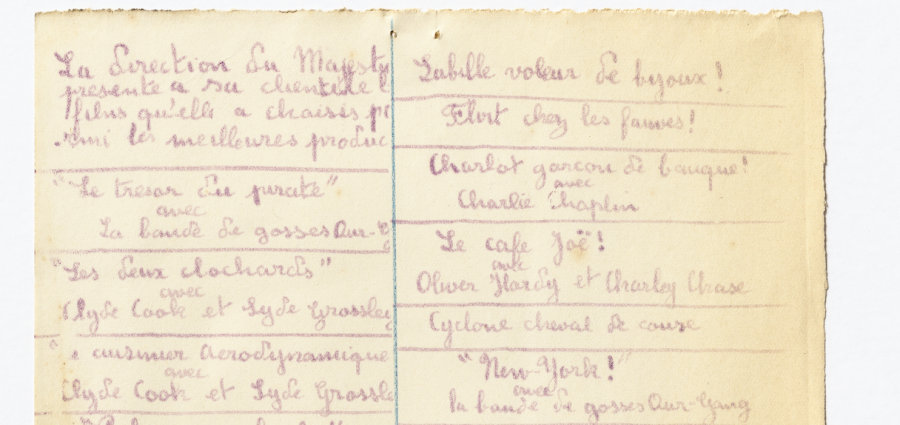 La direction du Majesty
presente a sa clientele l
films qu'elle a choisis p
rmi les meilleures produc
"Le tresor du pirate"
avec
La bande de gosses Our-G
"Les deux clochards"
avec
Clyde Cook et Syde Grossley
cuisinier Aerodynamique
avec
Clyde Cook et Syde Grossle
Labille voleur de bijoux!
Flirt chez les fauves!
Charlot garcon de banque!
avec
Charlie Chaplin
Le cafe Joë!
avec
Oliver Hardy et Charley Chase
Cyclone cheval de course
"New-York!"
avec
la bande de gosses Our-Gang